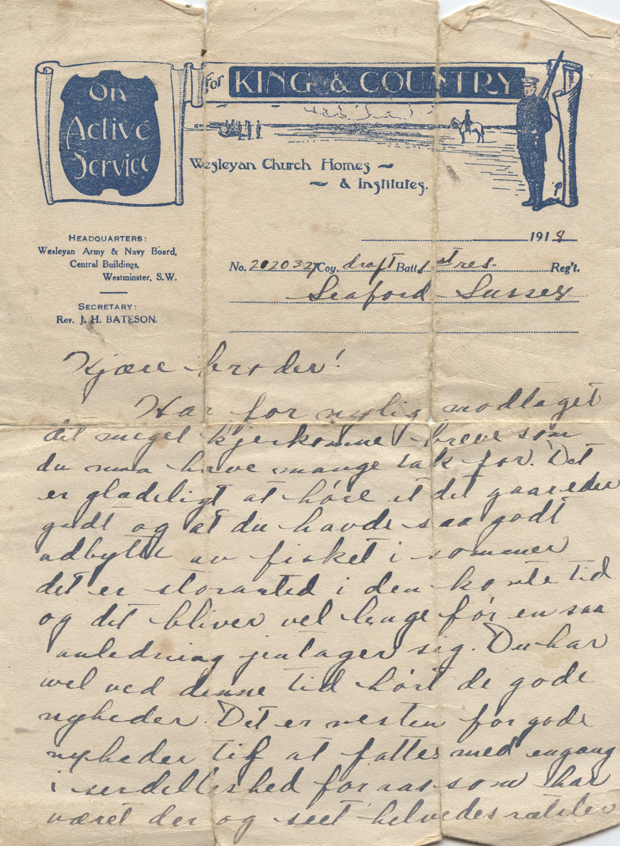 On
Active
Service
For KING & COUNTRY
Wesleyan Church Homes ~
~ & Institutes.
HEADQUARTERS:
Wesleyan Army & Navy Board,
Central Buildings,
Westminster, S.W.
SECRETARY:
Rev. J. H. BATESON.
1918
No. 2020327 Coy. draft Batt. 1st res. Reg't.
Seaford Sussex
Kjære broder!
Har for nylig modtaget
dit meget kjerkomne breve som
du maa have mange tak for. Det
er gladeligt at høre at det gaar eder
godt og at du havde saa godt
udbytte av fisket i sommer
det er storartet i den korte tid
og det bliver vel lenge før en saa
anledning jentager sig. Du har
vel ved denne tid hørt de gode
nyheder. Det er nesten for gode
nyheder til at fattes med engang
i serdelleshed for oas som har
været der og seet helvedes rætsler